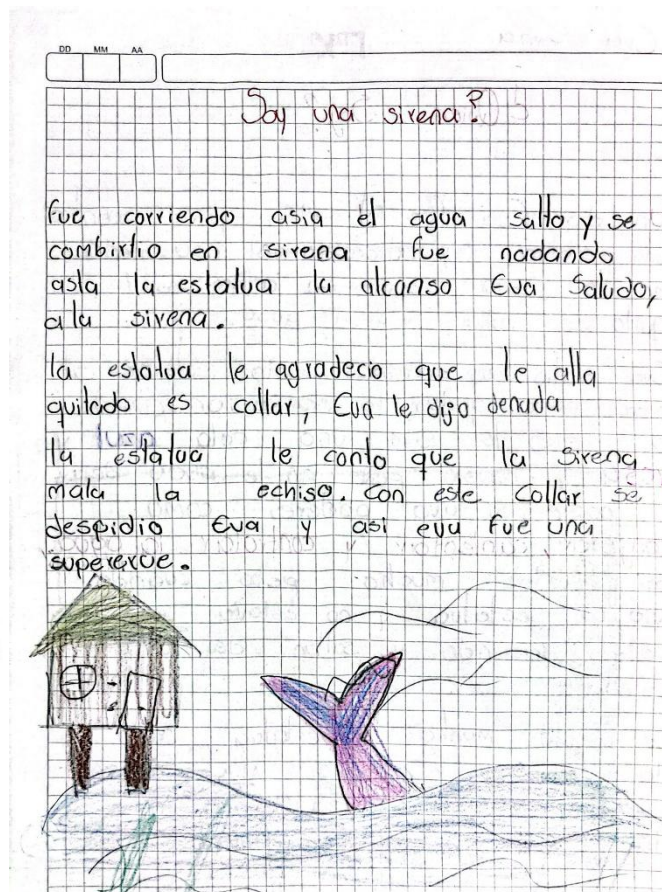 DD MM AA
Soy una sirena?
fue corriendo asia el agua salto y se
combirtio en sirena fue nadando
asta la estatua la alcanso Eva Saludo,
a la sirena.
la estatua le agradecio que le alla
quitado es collar, Eva le dijo denada
la estatua le conto que la sirena
mala la echiso. con este collar se
despidio Eva y asi eva fue una
supereroe.